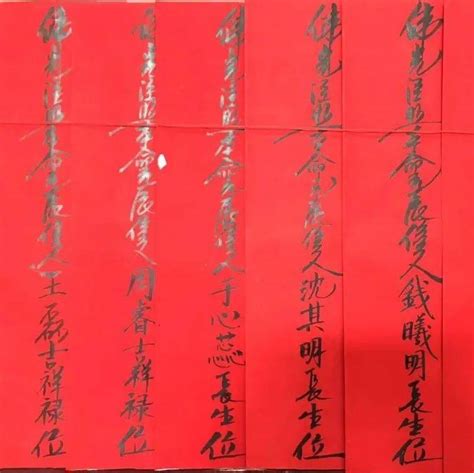 佛光注照本命元辰信人錢曦明長生位
佛光注照本命元辰信人沈其明長生位
佛光注照本命元辰信人于心蕊長生位
佛光注照本命元辰信人周睿吉祥禄位
佛光注照本命元辰信人王磊吉祥禄位